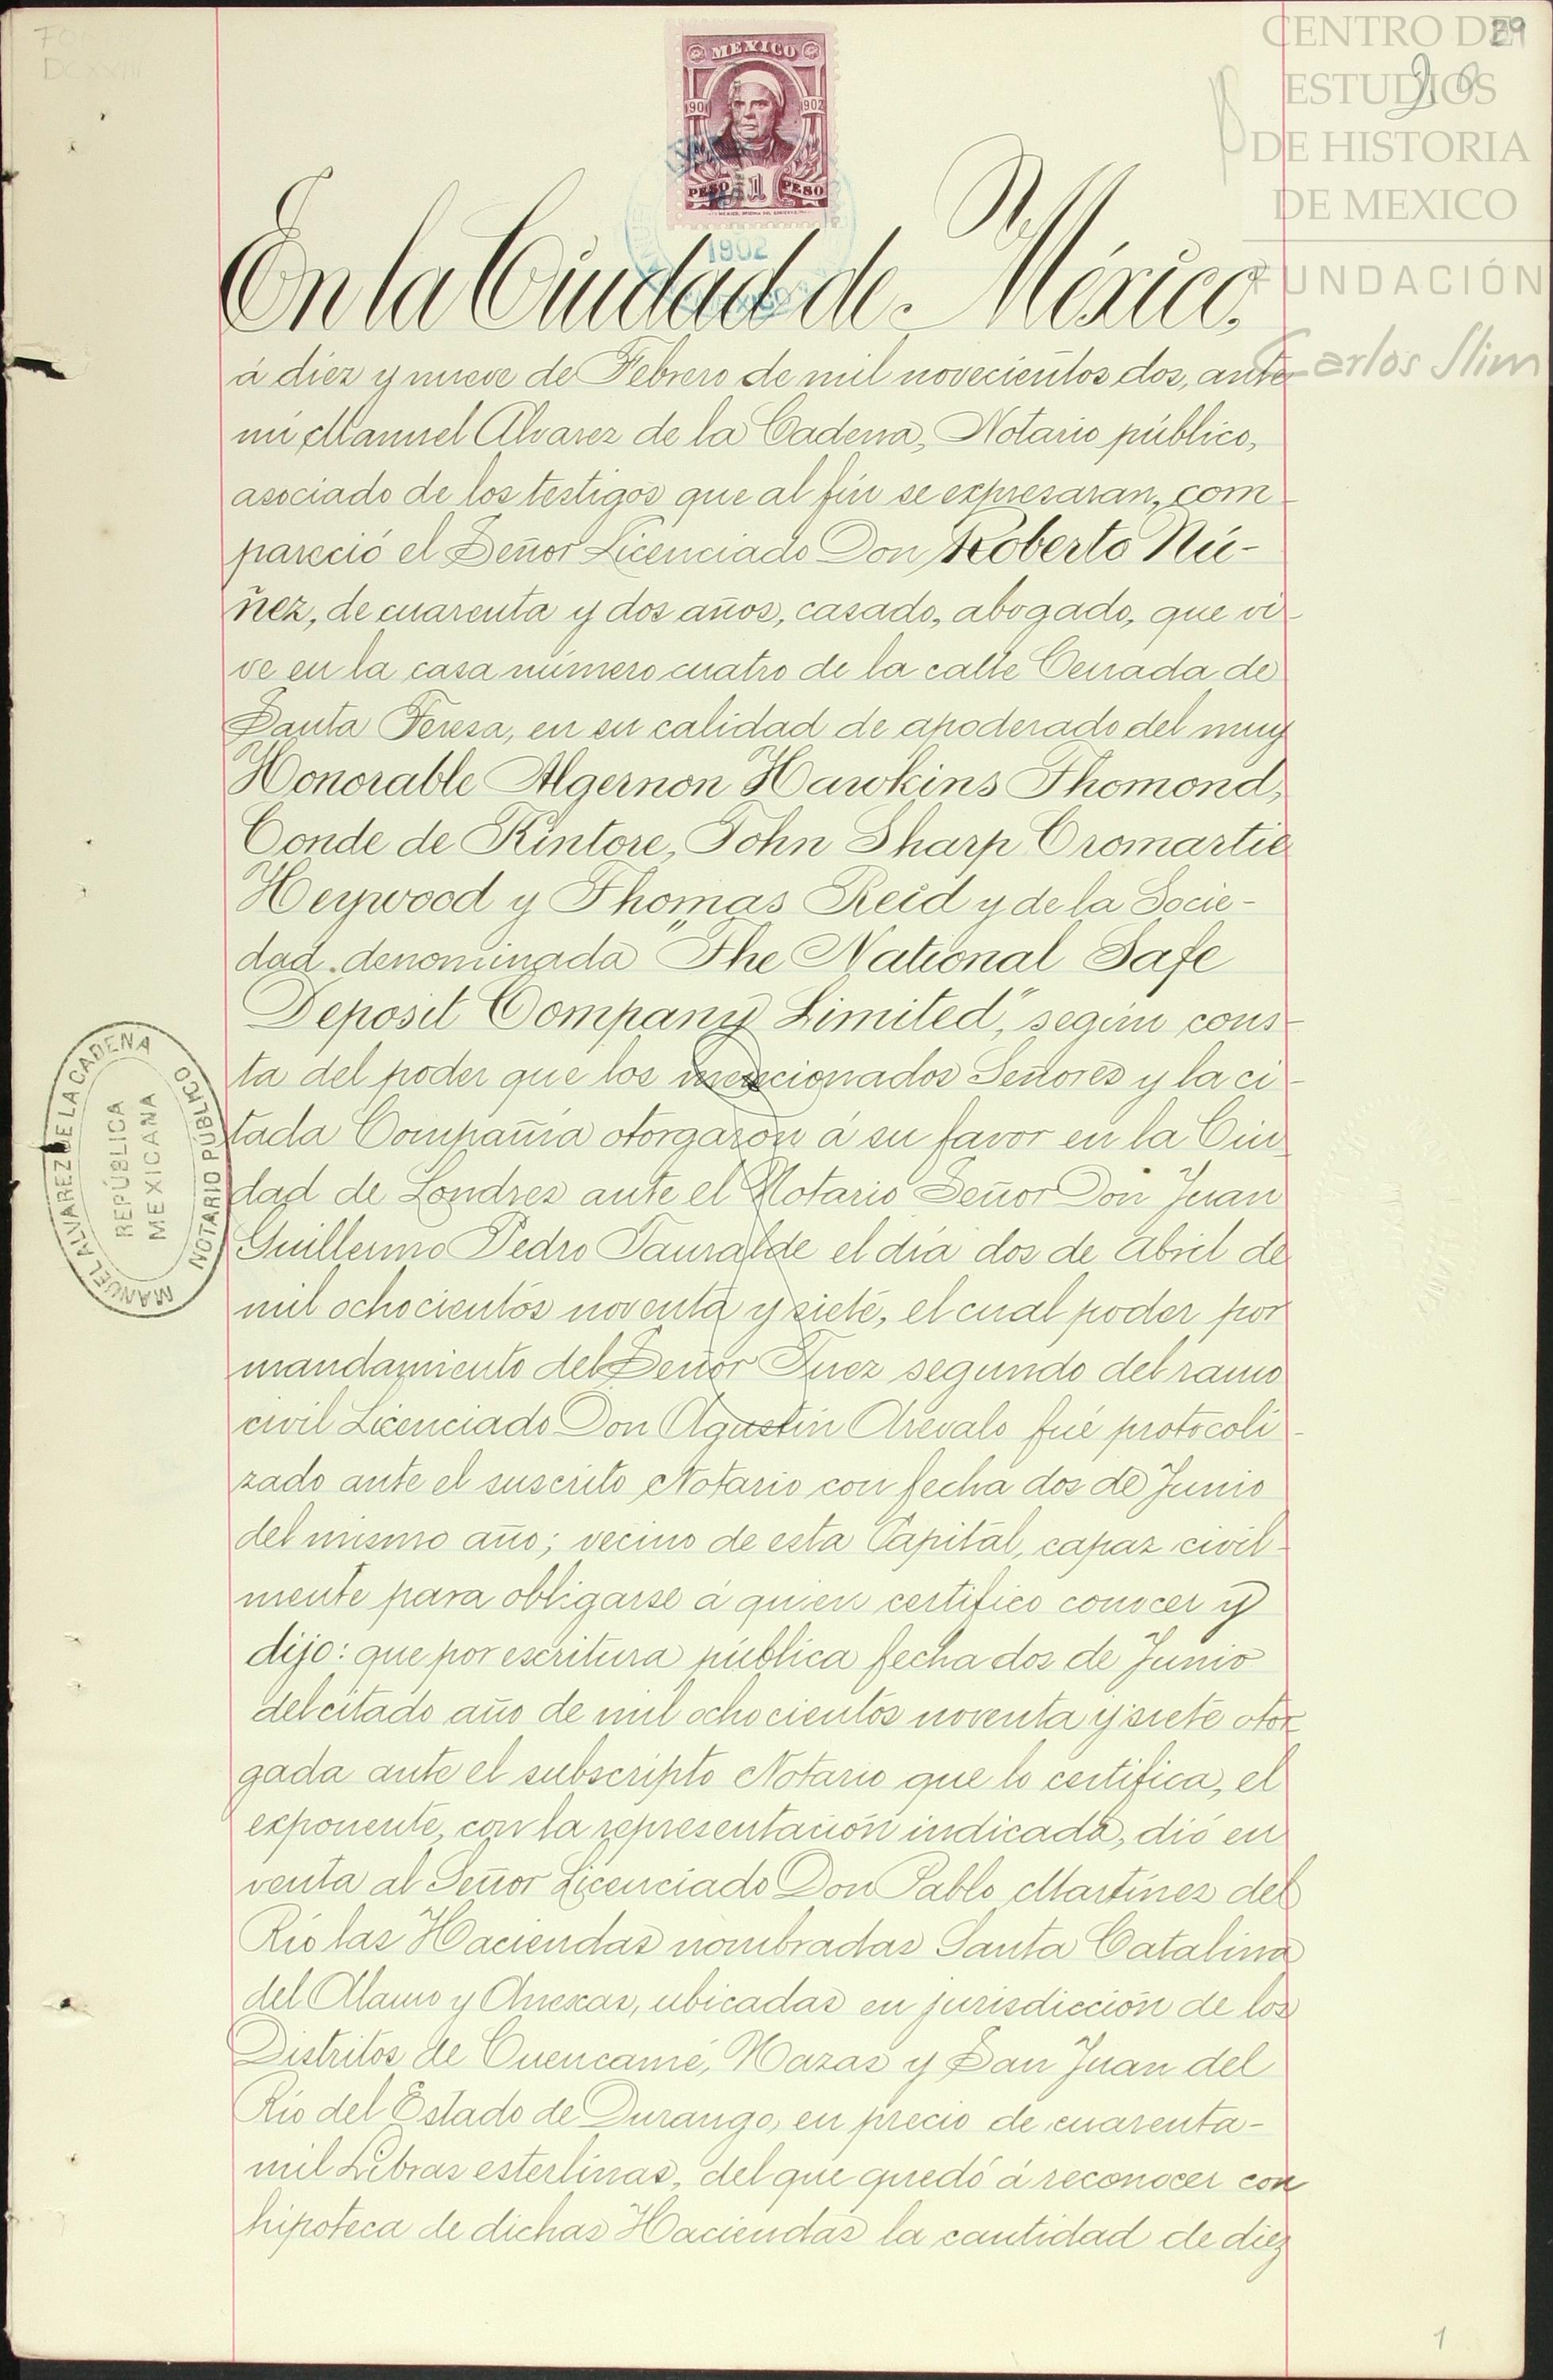 CENTRO DE
ESTUDIOS
DE HISTORIA
DE MEXICO
FUNDACIÓN
Carlos Slim
29
20
MEXICO
1901 1902
PESO 1 PESO
1902
En la Ciudad de México,
á diez y nueve de Febrero de mil novecientos dos, ante
mi, Manuel Alvarez de la Cadena, Notario público,
asociado de los testigos que al fin se expresaran, com-
pareció el Señor Licenciado Don Roberto Nú-
ñez, de cuarenta y dos años, casado, abogado, que vi-
ve en la casa número cuatro de la calle Cerrada de
Santa Teresa, en su calidad de apoderado del muy
Honorable Algernon Hawkins Thomond,
Conde de Kintore, John Sharp Cromartie
Heywood y Thomas Reid y de la Socie-
dad denominada "The National Safe
Deposit Company Limited", según cons-
ta del poder que los mencionados Señores y la ci-
tada Compañia otorgaron á su favor en la Ciu
dad de Londres ante el Notario Señor Don Juan
Guillermo Pedro Tauralde el día dos de Abril de
mil ochocientos noventa y siete, el cual poder por
mandamiento del Señor Juez segundo del ramo
civil Licenciado Don Agustín Arévalo fué protocoli-
zado ante el suscrito Notario con fecha dos de Junio
del mismo año; vecino de esta Capital, capaz civil-
mente para obligarse á quien certifico conocer y
dijo: que por escritura pública fecha dos de Junio
del citado año de mil ochocientos noventa y siete otor
gada ante el subscripto Notario que lo certifica, el
exponente, con la representación indicada, dió en
venta al Señor Licenciado Don Pablo Martínez del
Río las Haciendas nombradas Santa Catalina
del Alamo y Anexas, ubicadas en jurisdicción de los
Distritos de Cuencamé, Nazas y San Juan del
Río del Estado de Durango, en precio de cuarenta-
mil Libras esterlinas, del que quedó á reconocer con
hipoteca de dichas Haciendas la cantidad de diez
MANUEL ALVAREZ DE LA CADENA
NOTARIO PÚBLICO
REPÚBLICA
MEXICANA
1